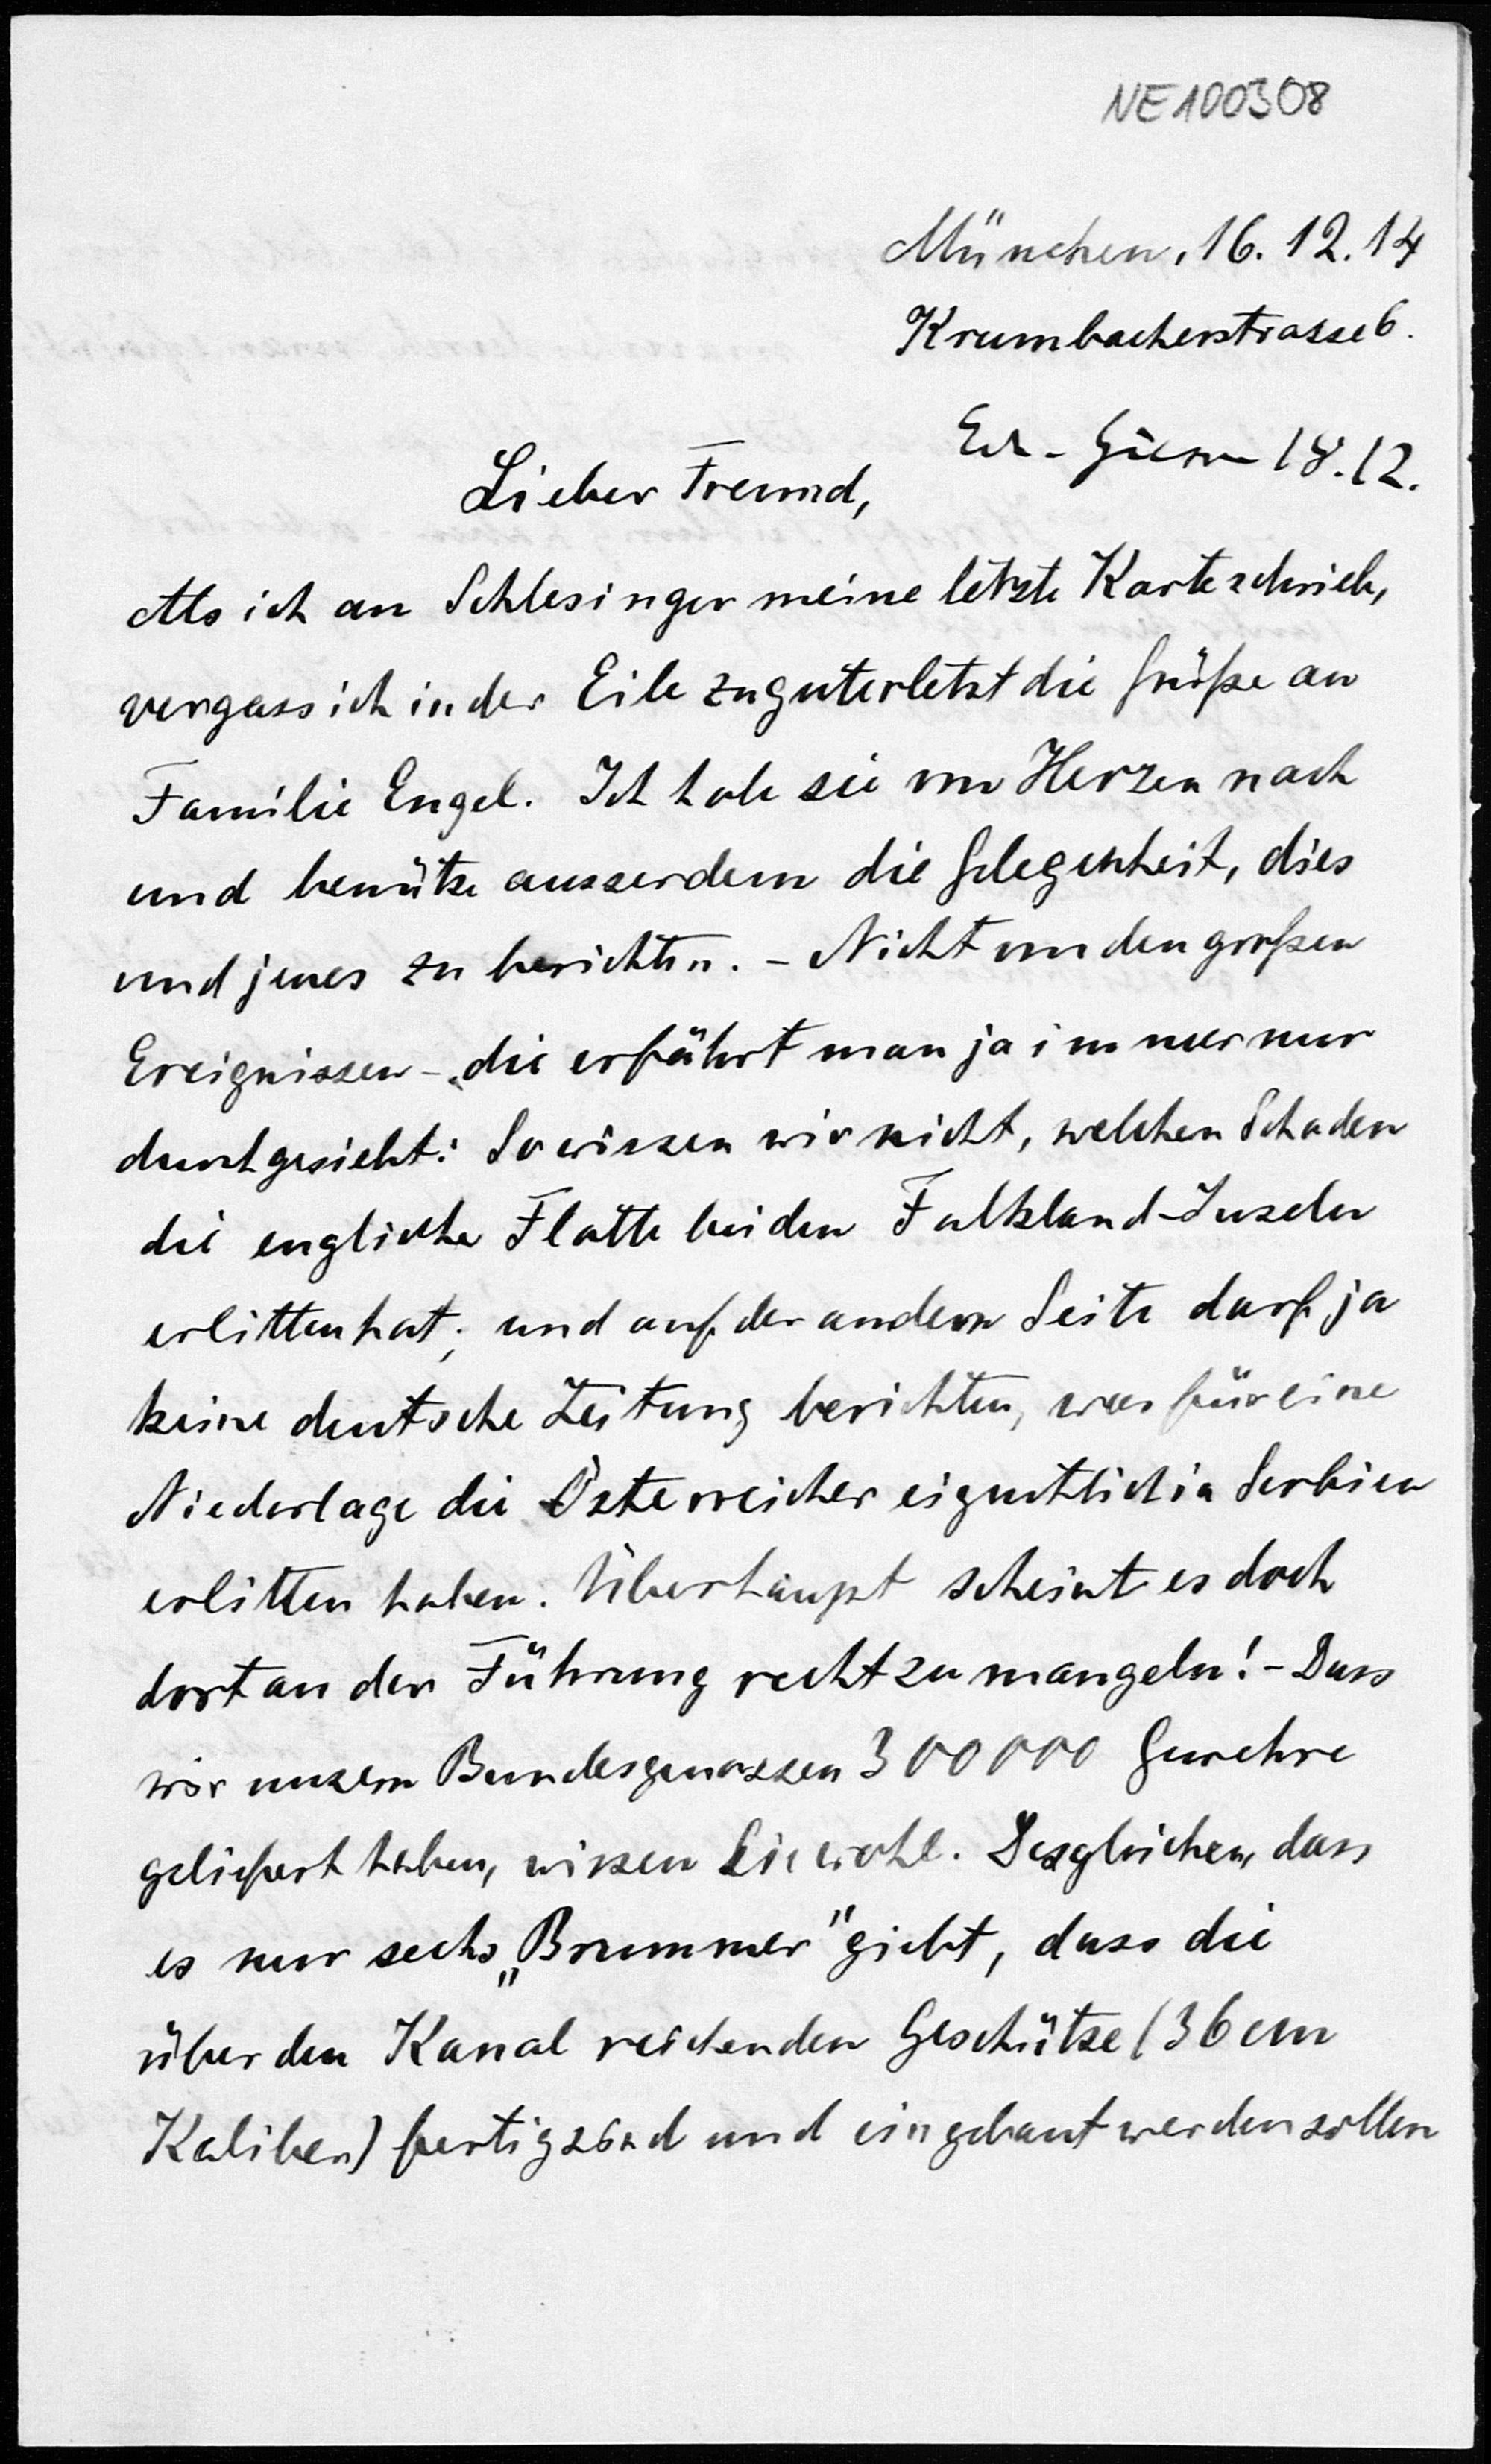 NE100308
München, 16.12.14
Krumbacherstrasse 6.
18.12.
Lieber Freund,
Als ich an Schlesinger meine letzte Karte schrieb,
vergass ich in der Eile zuguterletzt die Grüße an
Familie Engel. Ich hole sie von Herzen nach
und benütze ausserdem die Gelegenheit, dies
und jenes zu berichten. - Nicht von den großen
Ereignissen - die erfährt man ja immer nur
durchgesiebt: So wissen wir nicht, welchen Schaden
die englische Flotte bei den Falkland-Inseln
erlitten hat; und auf der andern Seite darf ja
keine deutsche Zeitung berichten, was für eine
Niederlage die Österreicher eigentlich in Serbien
erlitten haben. Überhaupt scheint es doch
dort an der Führung recht zu mangeln! - Dass
wir unsern Bundesgenossen 300000 Gewehre
geliefert haben, wissen Sie wohl. Desgleichen, dass
es nur sechs „Brummer" giebt, dass die
über den Kanal reichenden Geschütze (36 cm
Kaliber) fertig sind und eingebaut werden sollen